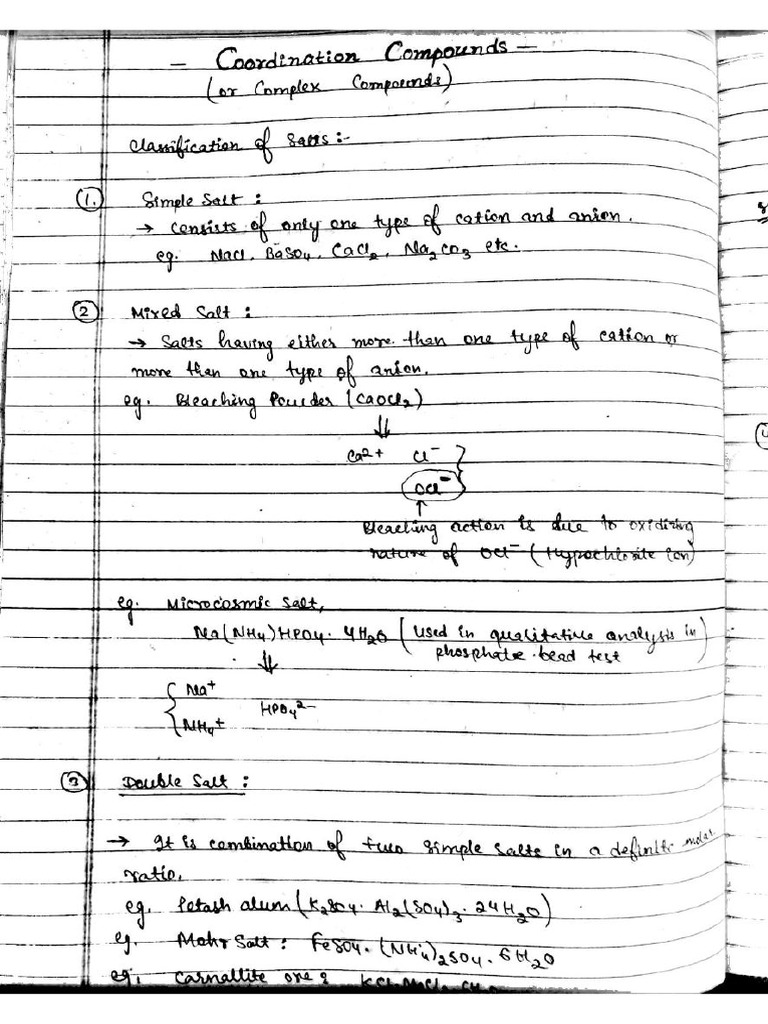 — Coordination Compounds —
(or Complex Compounds)
Classification of Salts :-
1. Simple Salt :
→ consists of only one type of cation and anion.
eg. NaCl, BaSO4, CaCl2, Na2CO3 etc.
2 Mixed Salt :
→ Salts having either more than one type of cation or
more than one type of anion.
eg. Bleaching Powder (CaOCl2)
⇓
Ca2+ Cl-
OCl-
↑
Bleaching action is due to oxidizing
nature of OCl- (Hypochlorite ion)
eg. Microcosmic Salt,
Na(NH4)HPO4. 4H2O (used in qualitative analysis in
phosphate bead test)
⇓
Na+
HPO4 2-
NH4+
3 Double Salt :
→ It is combination of two simple salts in a definite molar
ratio.
eg. Potash alum (K2SO4. Al2(SO4)3. 24H2O)
eg. Mohr Salt : FeSO4. (NH4)2SO4. 6H2O
eg. Carnallite ore :